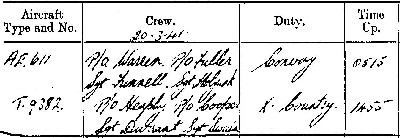 Aircraft Type and No. Crew. Duty. Time Up.
20-3-41
AE.611 P/O Warren. P/O Fuller Convoy 0515
Sgt Funnell. Sgt
T.9382. P/O Heaply P/O Cooper X-Country. 1455
Sgt Durrant Sgt